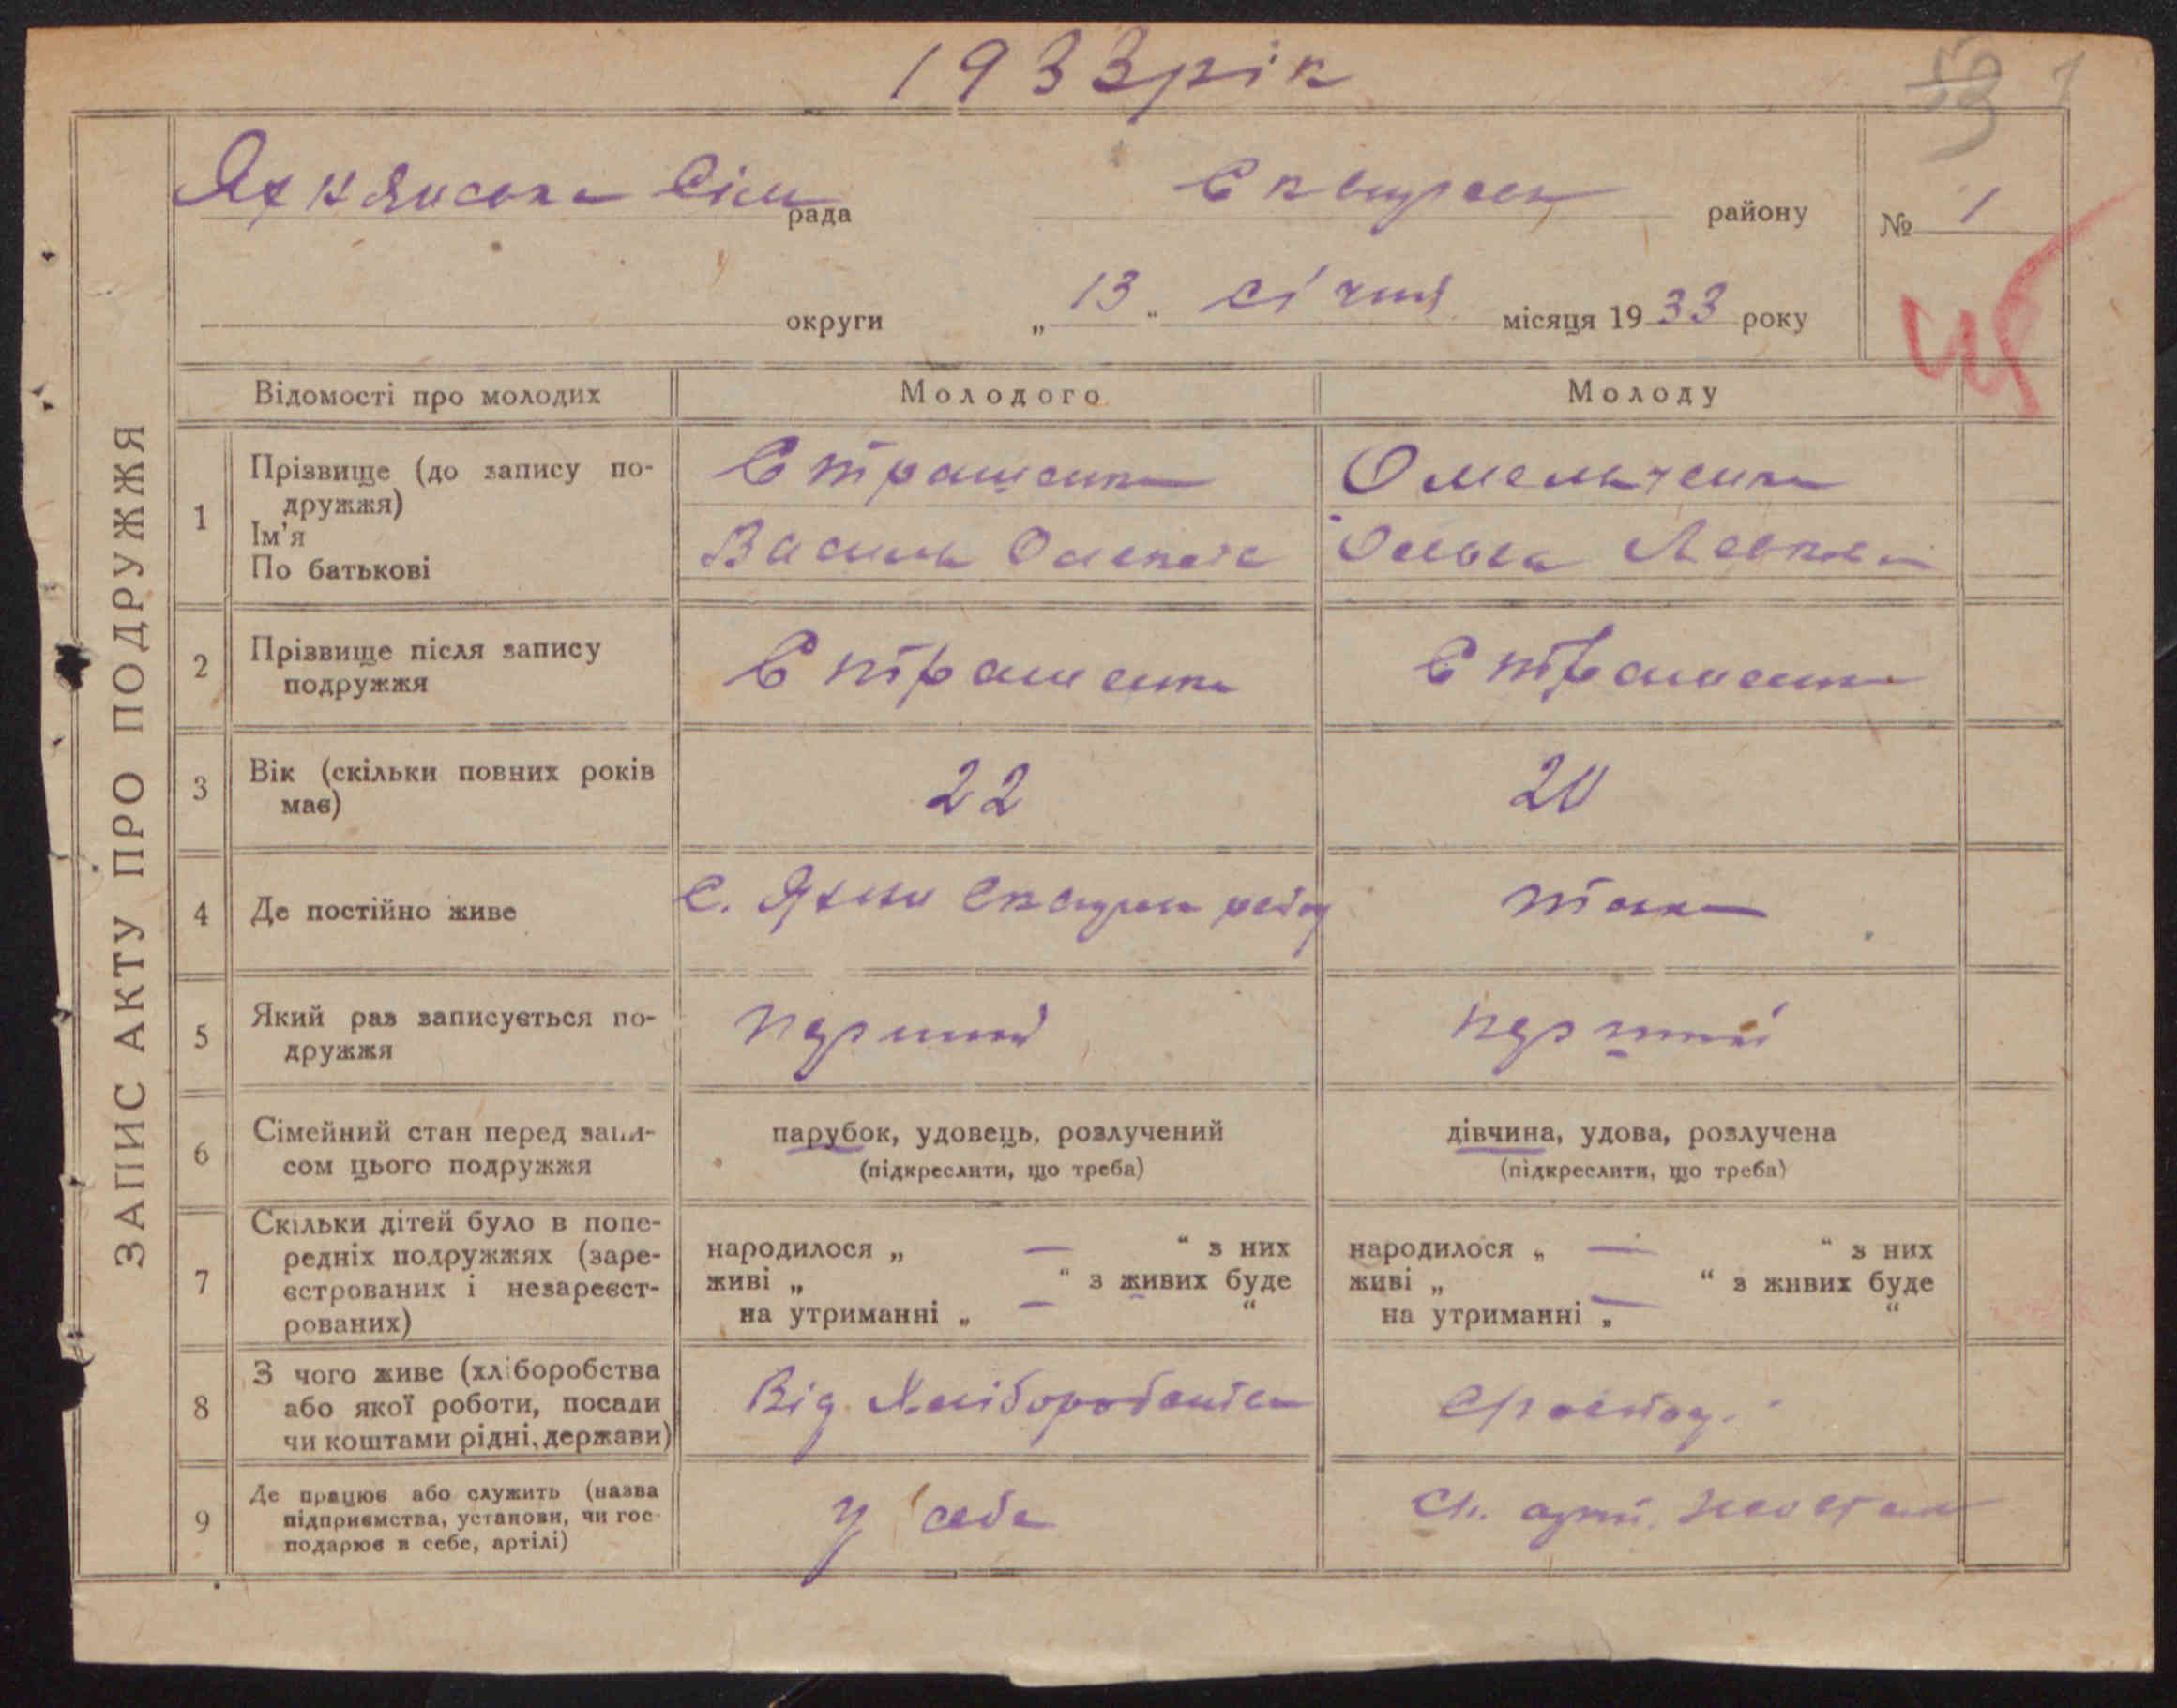 1933 рік
53 1
Яхнянська Сіл рада Сквирськ району № 1
округи „ 13 “ січня місяця 1933 року
ЗАПИС АКТУ ПРО ПОДРУЖЖЯ
Відомості про молодих Молодого Молоду
1 Прізвище (до запису по-
дружжя)
Ім'я
По батькові
Страшенко
Василь
Омельченко
Левков
2 Прізвище після запису
подружжя
Страшенко Страшенко
3 Вік (скільки повних років
має)
22 20
4 Де постійно живе
с. Яхни Сквирськ району
5 Який раз записується по-
дружжя
перший перший
6 Сімейний стан перед запи-
сом цього подружжя
парубок, удовець, розлучений
(підкреслити, що треба)
дівчина, удова, розлучена
(підкреслити, що треба)
7 Скільки дітей було в попе-
редніх подружжях (заре-
єстрованих і незареєст-
рованих)
народилося „ — “ з них
живі „ “ з живих буде
на утриманні „ — “
народилося „ — “ з них
живі „ “ з живих буде
на утриманні „ — “
8 З чого живе (хліборобства
або якої роботи, посади
чи коштами рідні, держави)
Від Хліборобства
9 Де працює або служить (назва
підприємства, установи, чи гос-
подарює в себе, артілі)
у себе